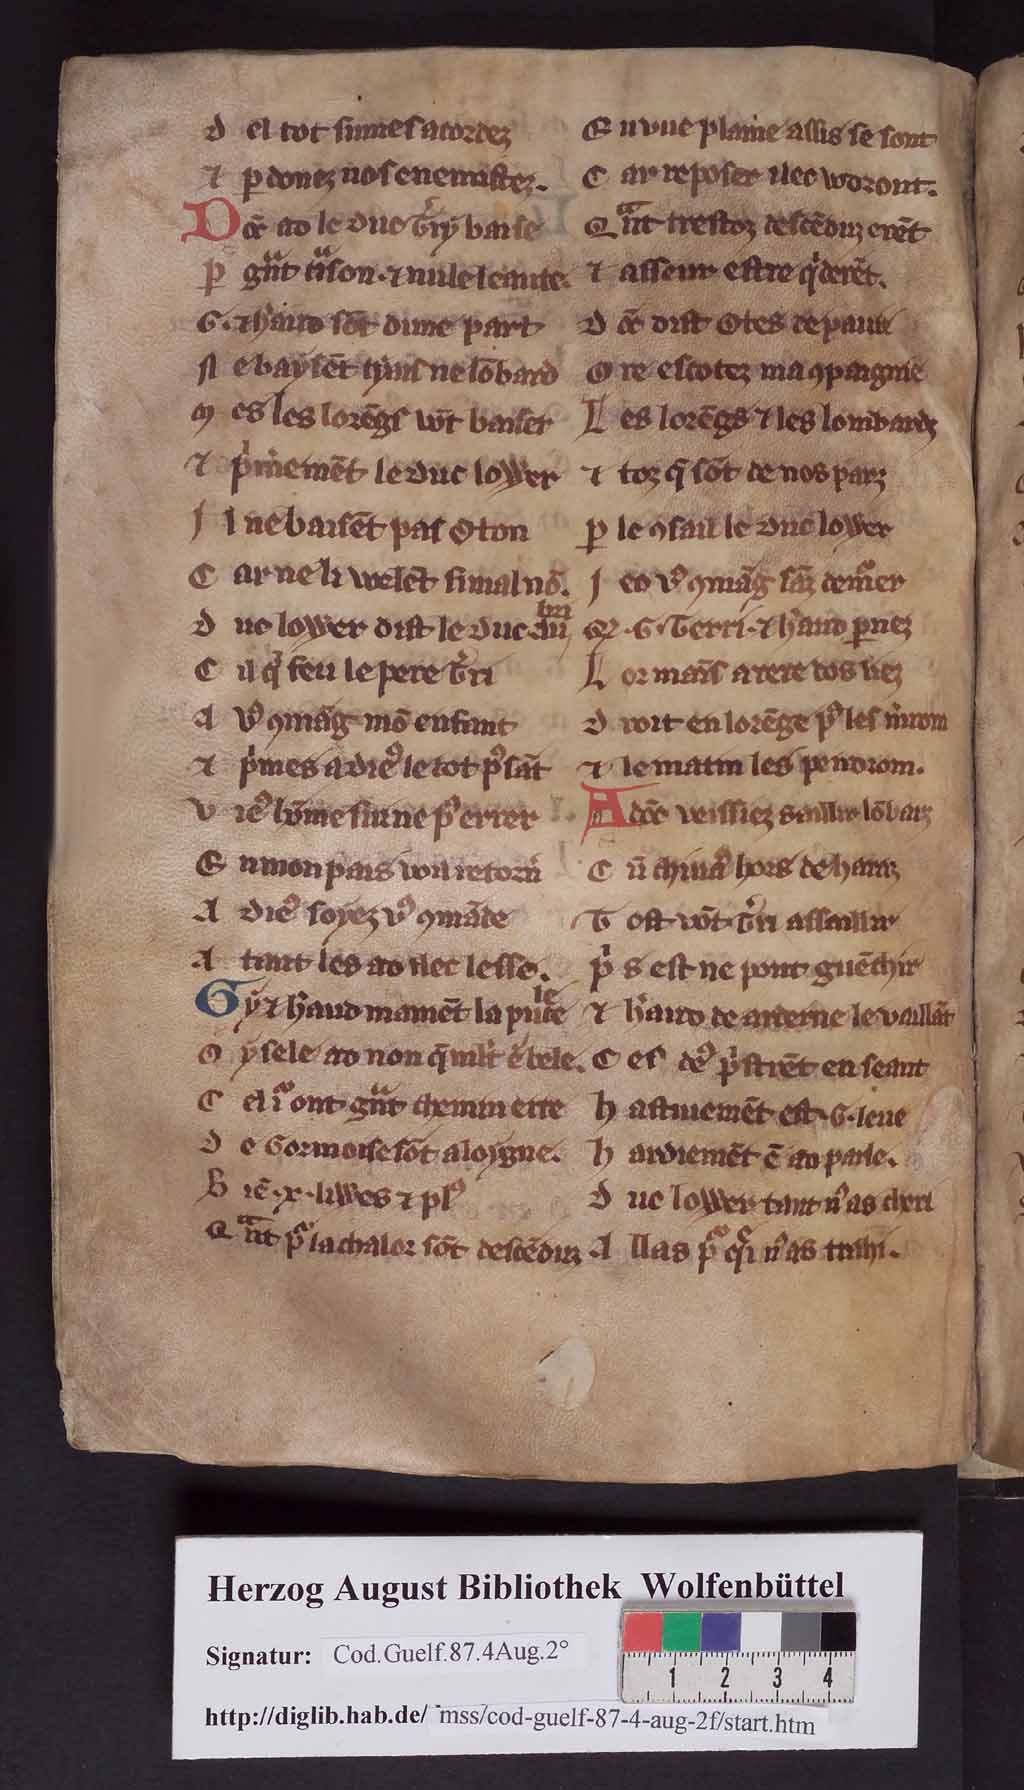 D el tot sumes acordez
⁊ ꝑdonez nos enemistez.
Dōc ad le duc Gͥrỹ baise
P gnͣt tͣison ⁊ nule leaute.
G. ⁊ hͥaud sōt dune part
N e baysēt
ne lōbard
M es les lorēgs vōt baiser
⁊ pͥmemēt le duc lower
J l ne baisēt pas Oton
C ar ne li welēt si mal nō.
D uc lower dist le duc
C il qͥ feu le pere Gͥri
A vꝰ ꝯmāg mō enfant
⁊ pͥmes a diēꝰ le tot pꝰsāt
V
E n mon pais voil retorñ
A dieꝰ soyez vꝰ ꝯmāde
A tant les ad ilec lesse.
Gỹ ⁊ hͥaud mainēt la pucele
O ysele ad non
bele.
C el iͦ ont gnͣt chemin erre
D e Gormoise sōt aloygne.
B iē .x. liwes ⁊ plꝰ
Q ͣnt pꝰ la chalor sōt descēduz
E n vne plaine assis se sont
C ar reposer ilec wdront.
Q ͣnt trestoz descēduz erēt
⁊ asseur estre qͥderēt.
D ōc dist Otes de paui
O re escotez ma ꝯpaignie
L es lorēgs ⁊ les lombardz
⁊ toz q̄ sōt de nos parz
ꝑ le ꝯsail le duc lower
J eo vꝰ ꝯmāg sāz demͦer
Q̄ .G. Terri ⁊ hͥaud ꝑnez
L or mains arere dos liez
D roit en lorēge pꝰ les mͥrom
⁊ le matin les pendrom.
A dōc veissiez saillir lōbarz
C ū
hors de haraz
T ost vōt Gͥri assaillir
Pͥs est ne pout guēchir
⁊ hͥaud de arderne le vaillāt
C es deꝰ pͥstrēt en seant
H astiuemēt est .G. leue
H ardiemēt ē ad parle.
D uc lower tant nꝰ as cheri
A llas pͦ qͣi nꝰ as trahi.
Herzog August Bibliothek Wolfenbüttel
Signatur: Cod.Guelf.87.4Aug.2°
1 2 3 4
http://diglib.hab.de/ mss/cod-guelf-87-4-aug-2f/start.htm